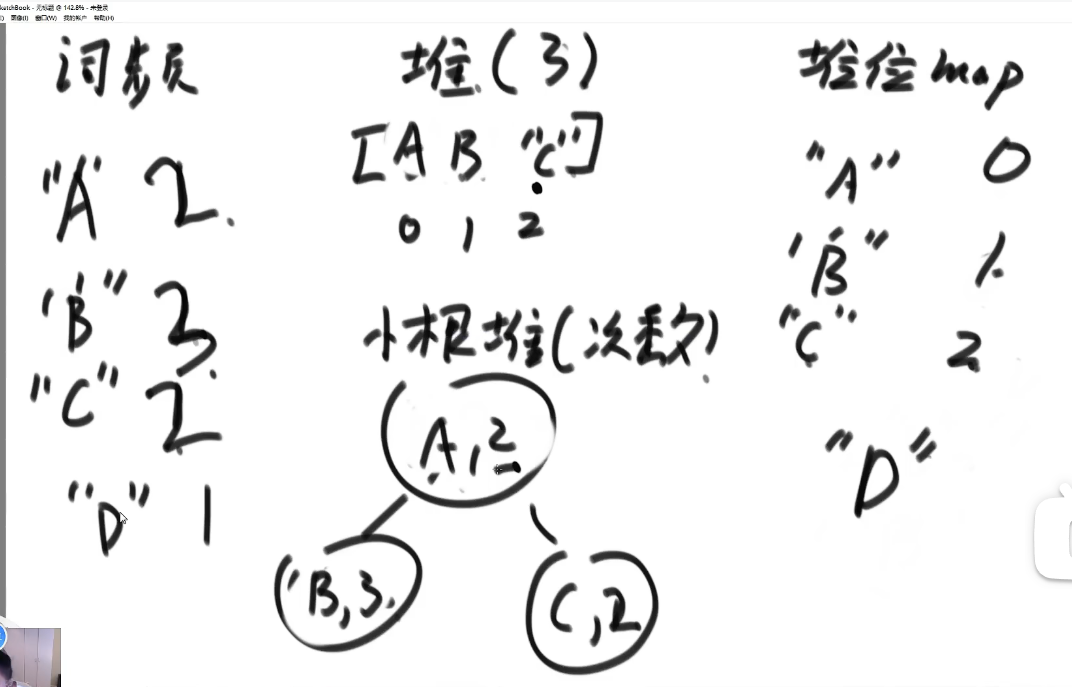 SketchBook - 无标题 @ 142.8% - 未登录
图像(I) 窗口(W) 我的帐户 帮助(H)
词频
"A" 2
'B" 3
"C" 2
"D" 1
堆(3)
[A B "C"]
0 1 2
小根堆(次数)
A,2
'B,3
C,2
堆位map
"A" 0
'B" 1
"C" 2
"D"